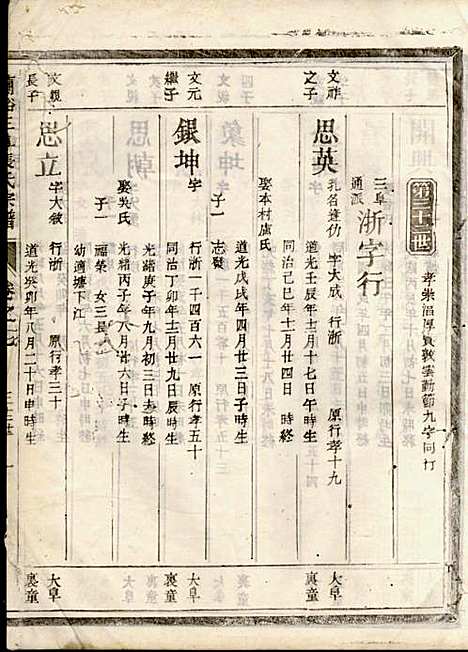 第三十三世
孝崇滔厚貢敦雲勤節九字同行
三阜
通派
浙字行
文祚
之子
思英
孔名逢仂 字大成 行浙 原行孝十九 大阜
道光壬辰年十月十七日午時生 裏童
同治己巳年十一月廿四日 時終
娶本村盧氏
道光戊戌年四月廿三日子時生
子一
志發
文元
繼子
銀坤
字 行浙一千四百六一 原行孝五十 大阜
同治丁卯年十二月廿九日辰時生 裏童
光緒庚子年九月初三日 時終
娶吳氏
光緒丙子年八月廿六日子時生
子一
福榮 女三長
幼適塘下江
文親
長子
思立
字大敘 行浙 原行孝三十 大阜
道光癸卯年八月二十日申時生 裏童